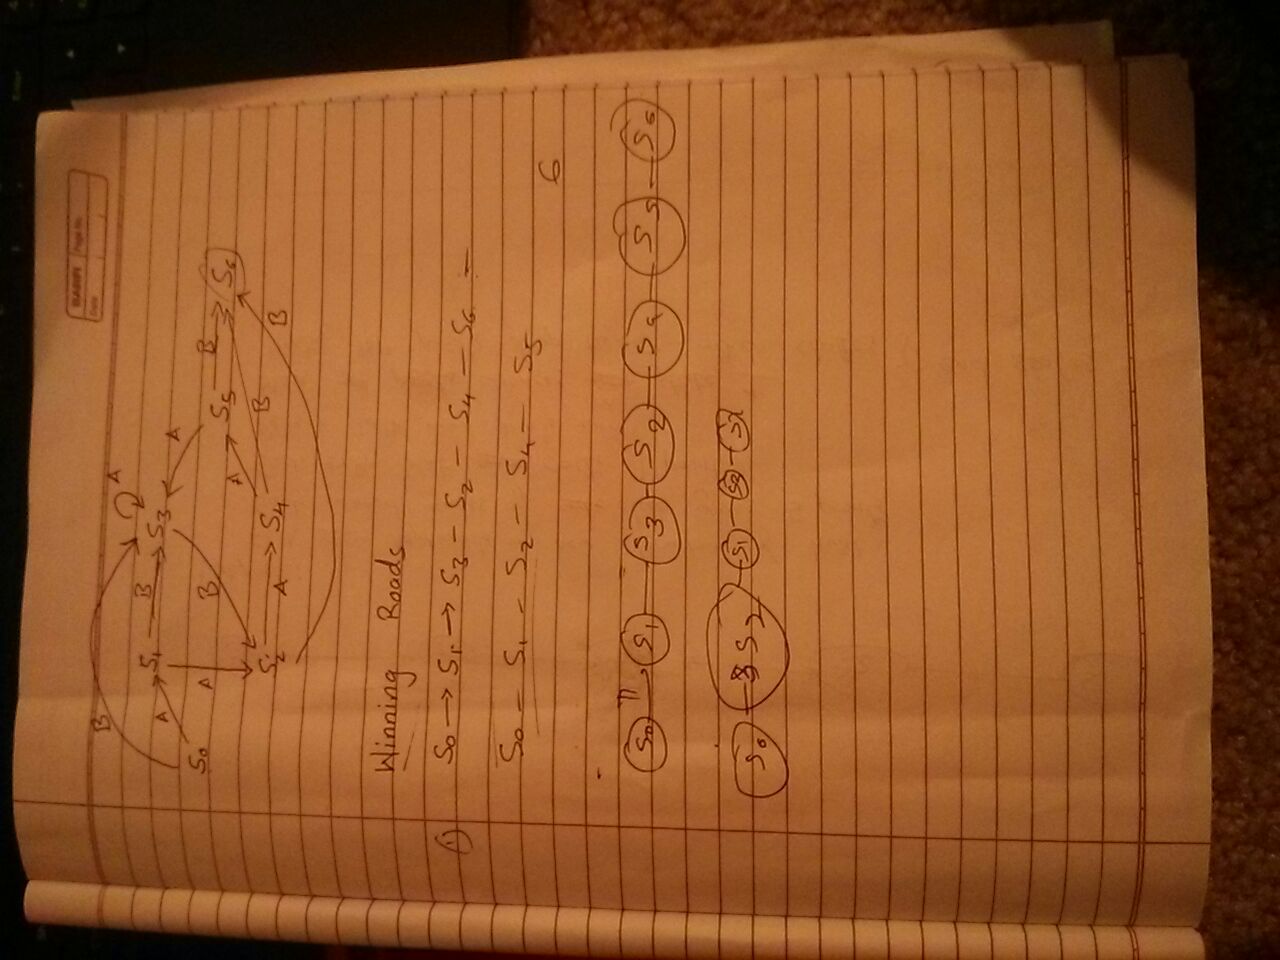 Page No.
Date
B A
A S₁ B S₃
S₀ A B A
S₅ B S₆
A
S₂ A S₄ B B
Winning Roads
① S₀ → S₁ → S₃ - S₂ - S₄ - S₆ -
S₀ - S₁ - S₂ - S₄ - S₅
6
S₀ S₁ S₃ S₂ S₄ S₅ S₆
S₀ S₂ S₁ S₂